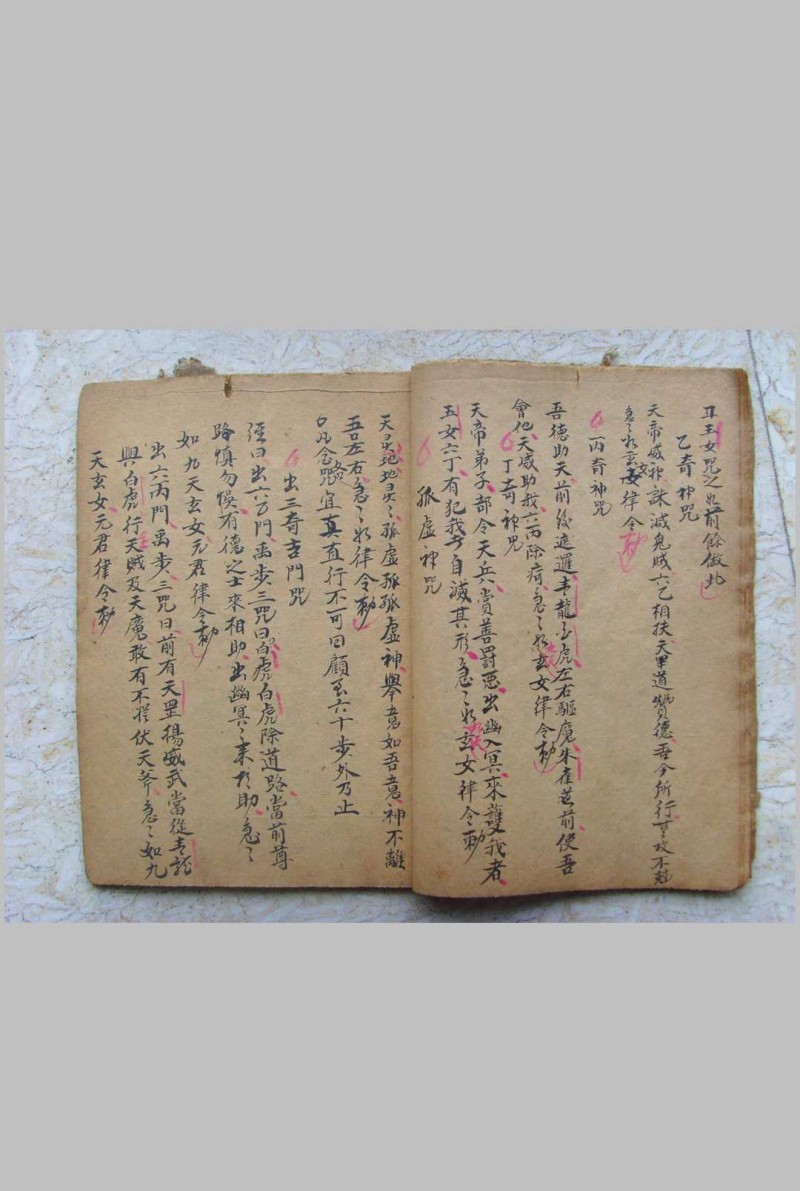 耳玉女咒之如前餘倣此
乙奇神咒
天帝威神誅滅鬼賊六乙相扶天軍道贊德吾今所行無攻不尅
急〻如玄女律令勅
丙奇神咒
吾德助天前後遮邏青龍白虎左右驅魔朱雀前使吾
會他天威助我六丙除疴急〻如玄女律令勅
丁奇神咒
天帝弟子部令天兵賞善罰惡出幽入冥來護我者
玉女六丁有犯我者自滅其形急〻如玄女律令勅
孤虛神咒
天灵地地灵〻孤虛孤孤虛神舉意如吾意神不離
吾左右急〻如律令勅
凡念咒路宜真直行不可回顧至六十步外乃止
出三奇吉門咒
經曰出六乙門禹步三咒曰白虎白虎除道路當前尊
路慎勿悞有德之士來相助出幽冥〻來相助急〻
如九天玄女元君律令勅
出六丙門禹步三咒曰前有天罡揚威武當從青龍
與白虎行天賊及天魔敢有不從伏天斧急〻如九
天玄女元君律令勅